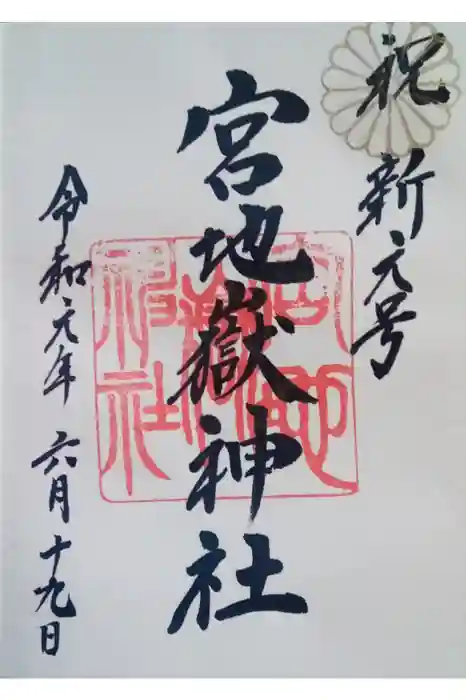 祝 新元号
宮地嶽神社
令和元年 六月 十九日
宮地嶽神社